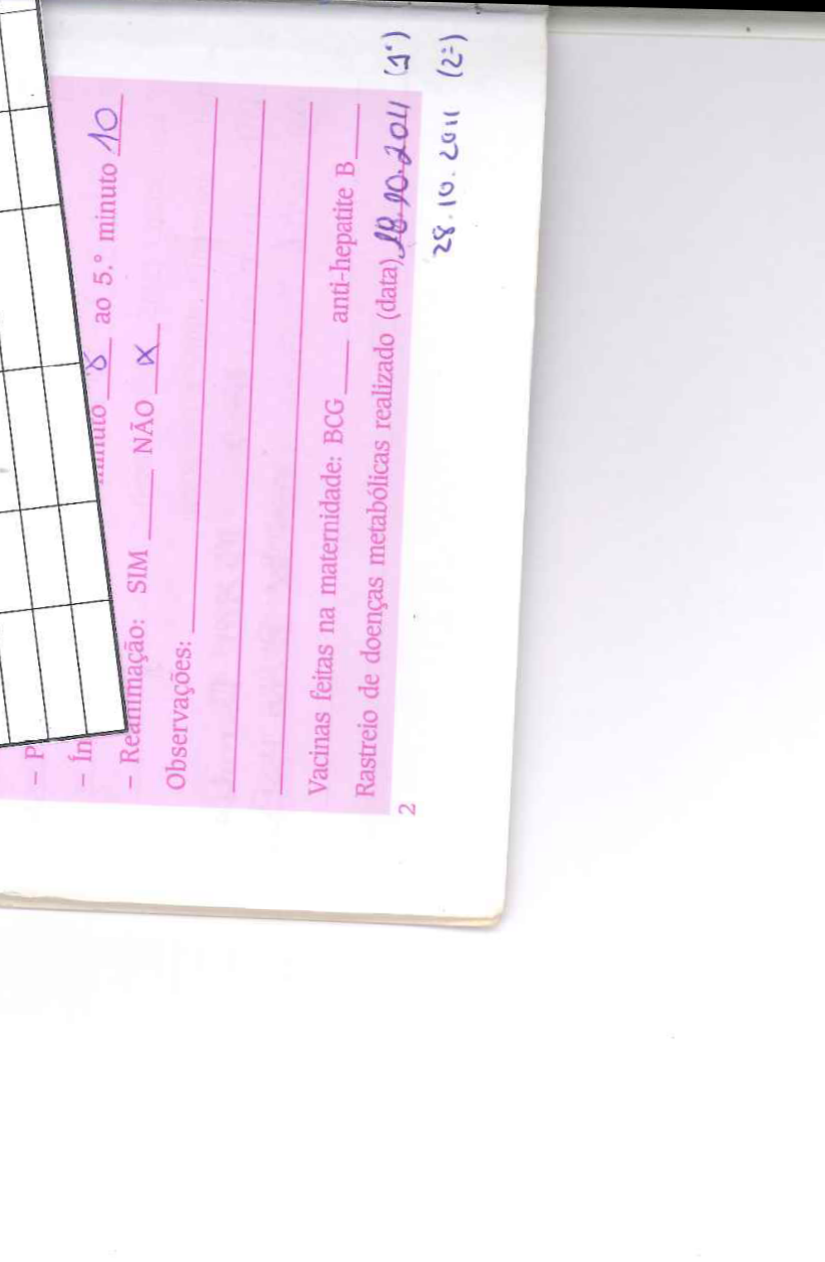 – P
– Ín minuto 8 ao 5.° minuto 10
– Reanimação: SIM ____ NÃO X
Observações:
Vacinas feitas na maternidade: BCG ____ anti-hepatite B ____
Rastreio de doenças metabólicas realizado (data) 18.10.2011 (1°)
28.10.2011 (2º)
2